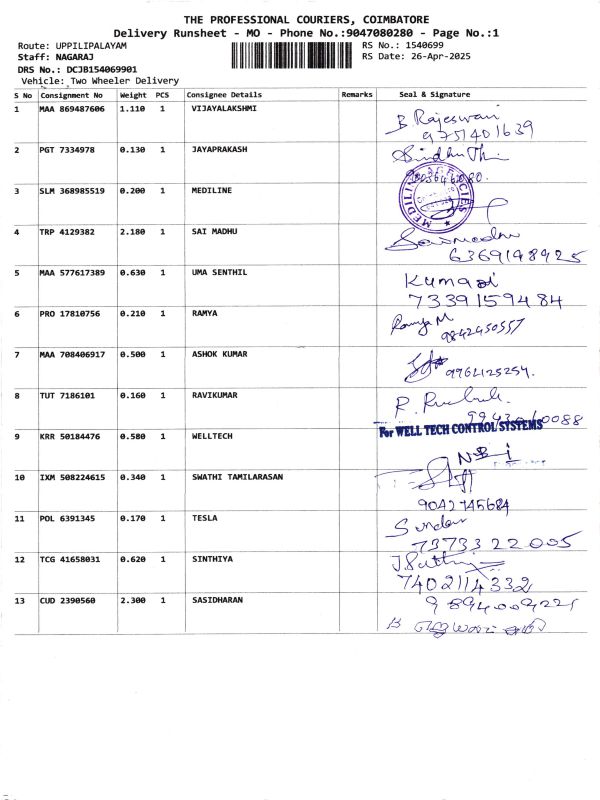 THE PROFESSIONAL COURIERS, COIMBATORE
Delivery Runsheet - MO - Phone No.:9047080280 - Page No.:1
Route: UPPILIPALAYAM RS No.: 1540699
Staff: NAGARAJ RS Date: 26-Apr-2025
DRS No.: DCJB154069901
Vehicle: Two Wheeler Delivery
S No Consignment No Weight PCS Consignee Details Remarks Seal & Signature
1 MAA 869487606 1.110 1 VIJAYALAKSHMI
B Rajeswari
9751401639
2 PGT 7334978 0.130 1 JAYAPRAKASH
3 SLM 368985519 0.200 1 MEDILINE
MEDILINE AGENCIES
4 TRP 4129382 2.180 1 SAI MADHU
6369198925
5 MAA 577617389 0.630 1 UMA SENTHIL
7339159484
6 PRO 17810756 0.210 1 RAMYA
Ramya M
9842450557
7 MAA 708406917 0.500 1 ASHOK KUMAR
8 TUT 7186101 0.160 1 RAVIKUMAR
9 KRR 50184476 0.580 1 WELLTECH
For WELL TECH CONTROL SYSTEMS
10 IXM 508224615 0.340 1 SWATHI TAMILARASAN
9042745684
11 POL 6391345 0.170 1 TESLA
7373322005
12 TCG 41658031 0.620 1 SINTHIYA
7402114332
13 CUD 2390560 2.300 1 SASIDHARAN